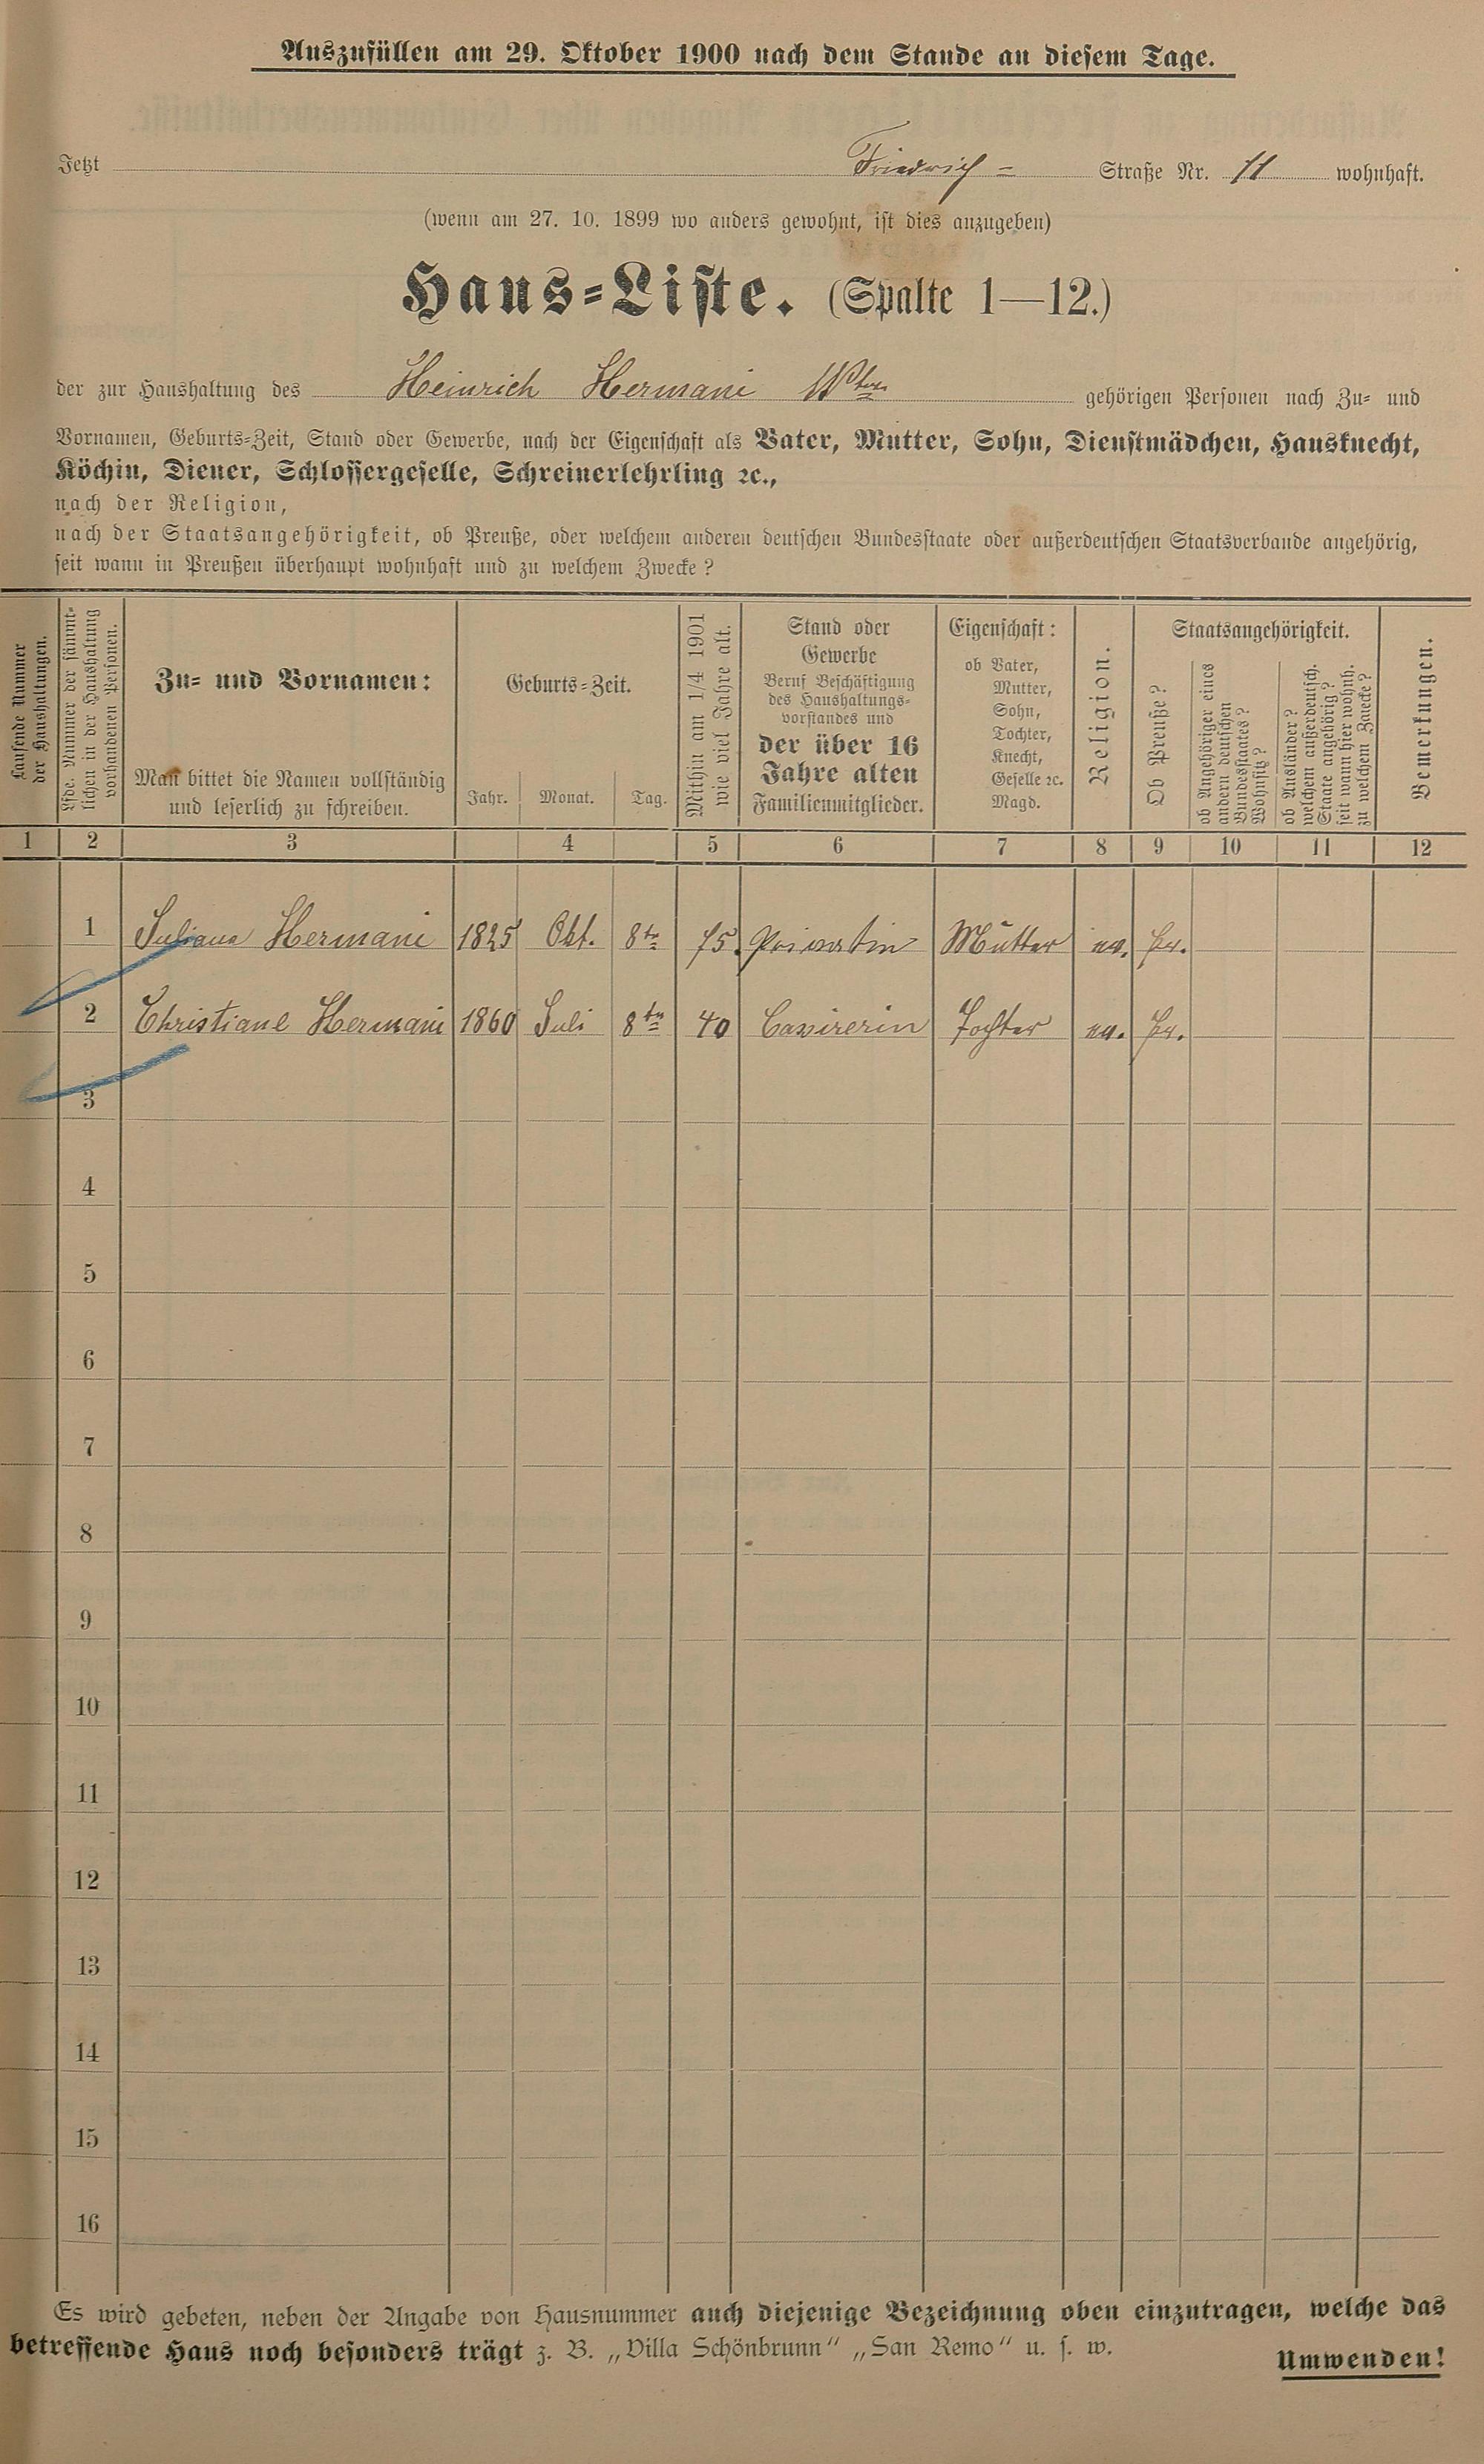 Auszufüllen am 29. Oktober 1900 nach dem Stande an diesem Tage.
Jetzt Friedrich- Straße Nr. 11 wohnhaft.
(wenn am 27. 10. 1899 wo anders gewohnt, ist dies anzugeben)
Haus-Liste. (Spalte 1—12.)
der zur Haushaltung des Heinrich Hermani Wtwe gehörigen Personen nach Zu- und
Vornamen, Geburts-Zeit, Stand oder Gewerbe, nach der Eigenschaft als Vater, Mutter, Sohn, Dienstmädchen, Hausknecht,
Köchin, Diener, Schlossergeselle, Schreinerlehrling ꝛc.,
nach der Religion,
nach der Staatsangehörigkeit, ob Preuße, oder welchem anderen deutschen Bundesstaate oder außerdeutschen Staatsverbande angehörig,
seit wann in Preußen überhaupt wohnhaft und zu welchem Zwecke?
Laufende Nummer
der Haushaltungen.
Lfde. Nummer der sämmt-
lichen in der Haushaltung
vorhandenen Personen.
Zu- und Vornamen:
Man bittet die Namen vollständig
und leserlich zu schreiben.
Geburts-Zeit.
Jahr. Monat. Tag.
Mithin am 1/4 1901
wie viel Jahre alt.
Stand oder
Gewerbe
Beruf Beschäftigung
des Haushaltungs-
vorstandes und
der über 16
Jahre alten
Familienmitglieder.
Eigenschaft:
ob Vater,
Mutter,
Sohn,
Tochter,
Knecht,
Geselle ꝛc.
Magd.
Religion.
Staatsangehörigkeit.
Ob Preuße?
ob Angehöriger eines
andern deutschen
Bundesstaates?
Wohnsitz?
ob Ausländer?
welchem außerdeutsch.
Staate angehörig?
seit wann hier wohnh.
zu welchem Zwecke?
Bemerkungen.
1 2 3 4 5 6 7 8 9 10 11 12
1 Juliana Hermani 1825 Okt. 8te 75. Privatin Mutter ev. Pr.
2 Christiane Hermani 1860 Juli 8te 40 Cassirerin Tochter ev. Pr.
3
4
5
6
7
8
9
10
11
12
13
14
15
16
Es wird gebeten, neben der Angabe von Hausnummer auch diejenige Bezeichnung oben einzutragen, welche das
betreffende Haus noch besonders trägt z. B. „Villa Schönbrunn“ „San Remo“ u. s. w.
Umwenden!